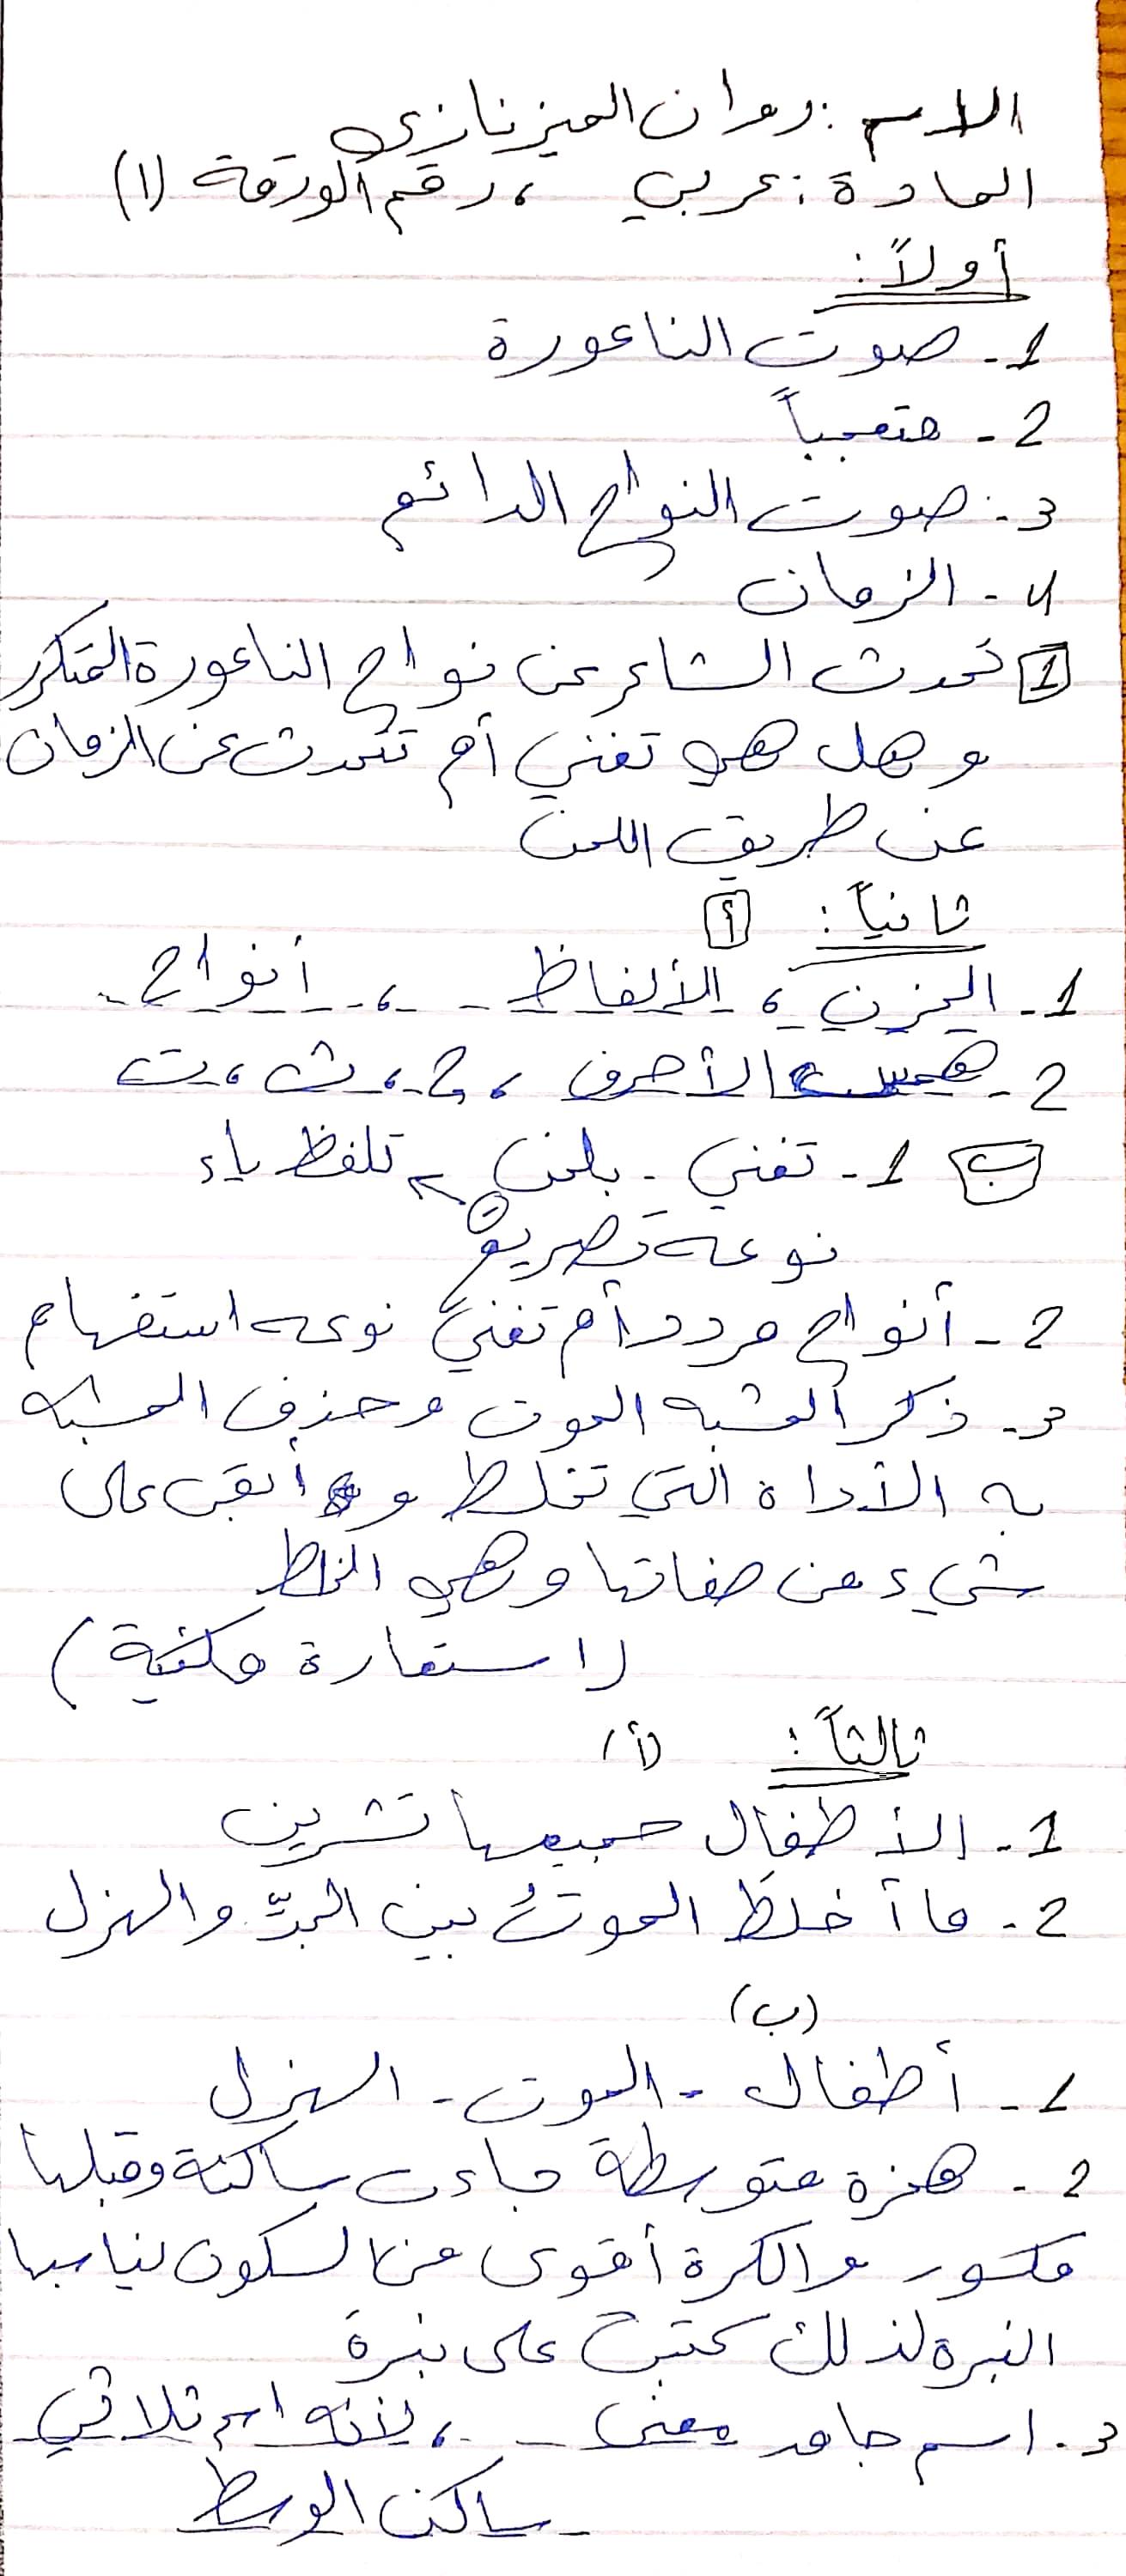 الاسم : روان الميزنازي
المادة : عربي ، رقم الورقة (1)
أولاً :
1- صوت الناعورة
2- متعجباً
3- صوت النواح الدائم
4- الزمان
1 تحدث الشاعر عن نواح الناعورة المتكرر
وهل هو تغني أم تتحدث عن الزمان
عن طريق اللحن
ثانياً : أ
1- الحزن ، الألفاظ - ، أنواح -
2- همس الأحرف ، ح ، ث ، ت
ب 1- تغني - بلحن تلفظ ياء
نوعه تصريع
2- أنواح مردد أم تغني نوعه استفهام
3- ذكر المشبه الموت وحذف المشبه
به الأداة التي تخلط و أبقى على
شيء من صفاتها وهي الخلط
(استعارة مكنية)
ثالثاً : (أ)
1- الأطفال جميعها تشرين
2- ما أخلطَ الموتَ بين الجدّ والهزل
(ب)
1- أطفال - الموت - الهزل
2- همزة متوسطة جاءت ساكنة وقبلها
مكسور والكرة أقوى من السكون يناسبها
النبرة لذلك كتبت على نبرة
3- اسم جامد معنى - ، لأنه اسم ثلاثي
ساكن الوسط